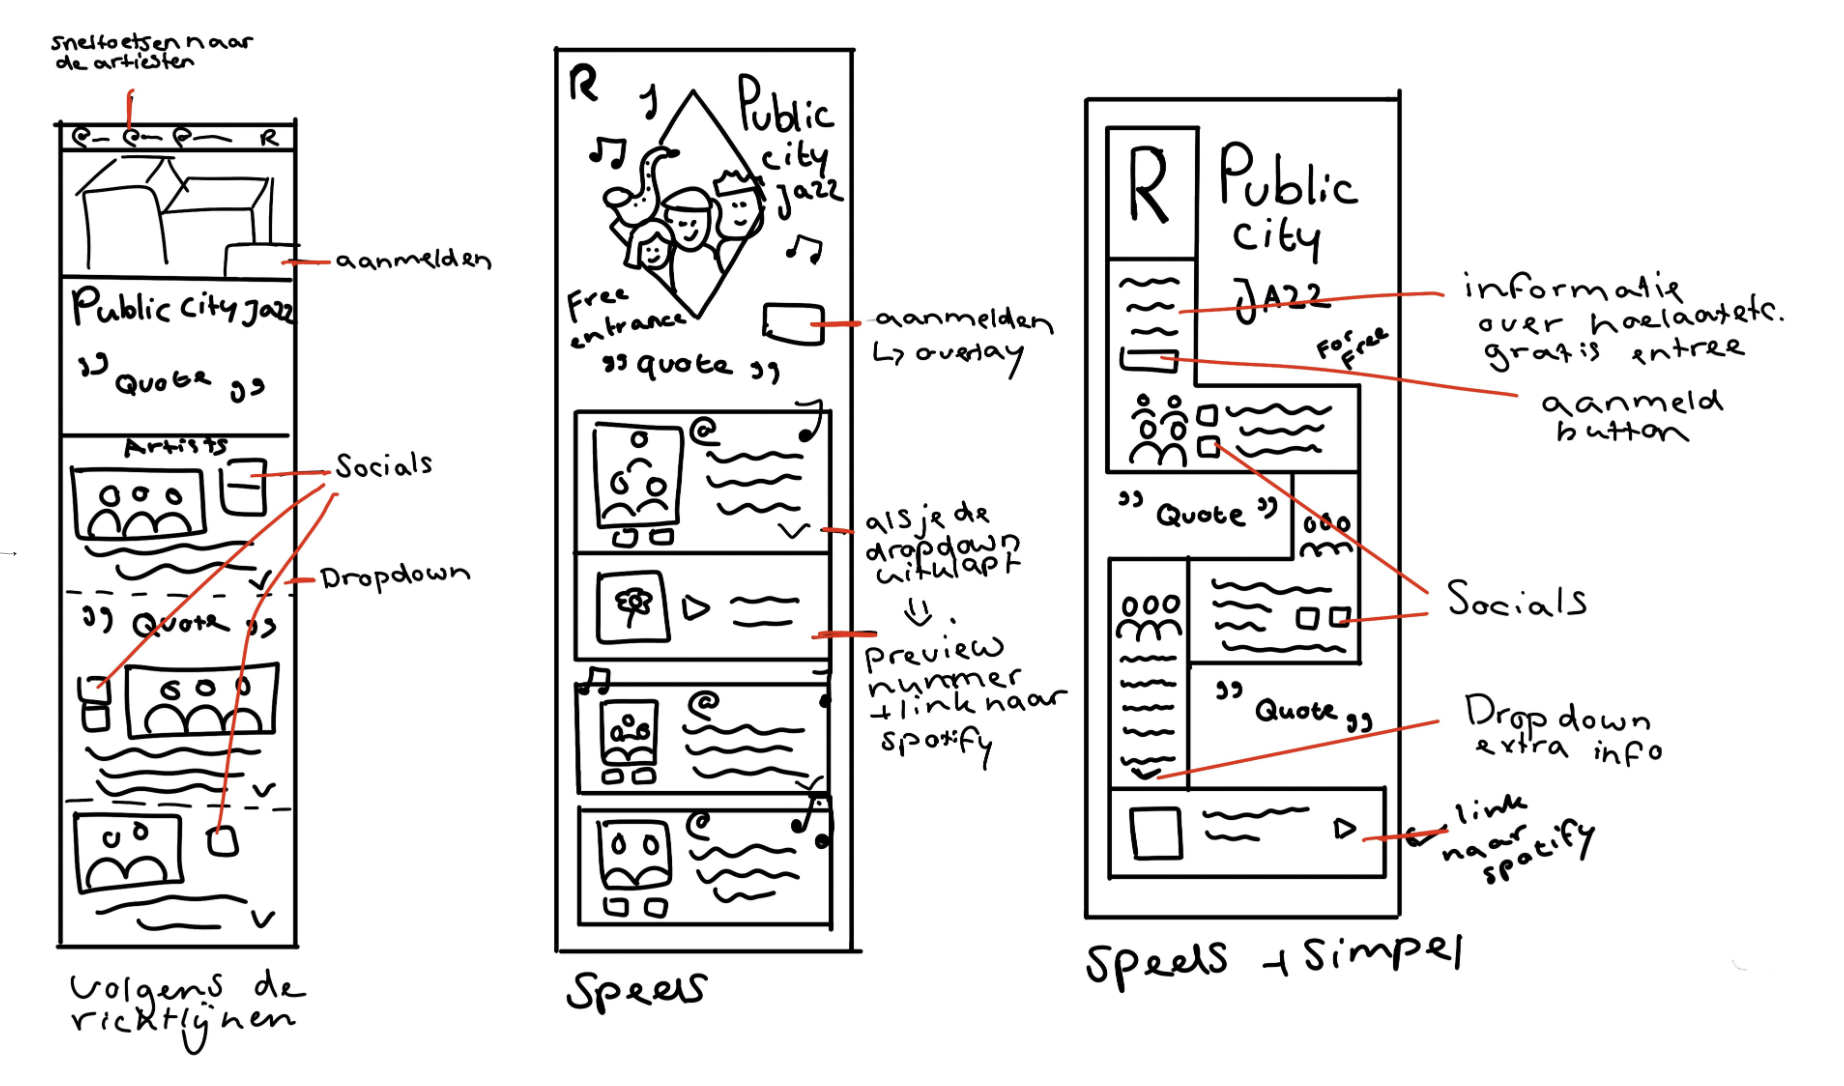 sneltoetsen naar
de artiesten
R
aanmelden
Public City Jazz
" Quote "
Artists
Socials
Dropdown
" Quote "
volgens de
richtlijnen
R
Public
city
jazz
Free
entrance
aanmelden
↳ overlay
" quote "
@
als je de
dropdown
uitklapt
⇓
preview
nummer
+ link naar
spotify
@
@
Speels
R
Public
city
JAZZ
For
Free
informatie
over hoelaat etc.
gratis entree
aanmeld
button
" Quote "
Socials
" Quote "
Dropdown
extra info
link
naar
spotify
Speels + Simpel